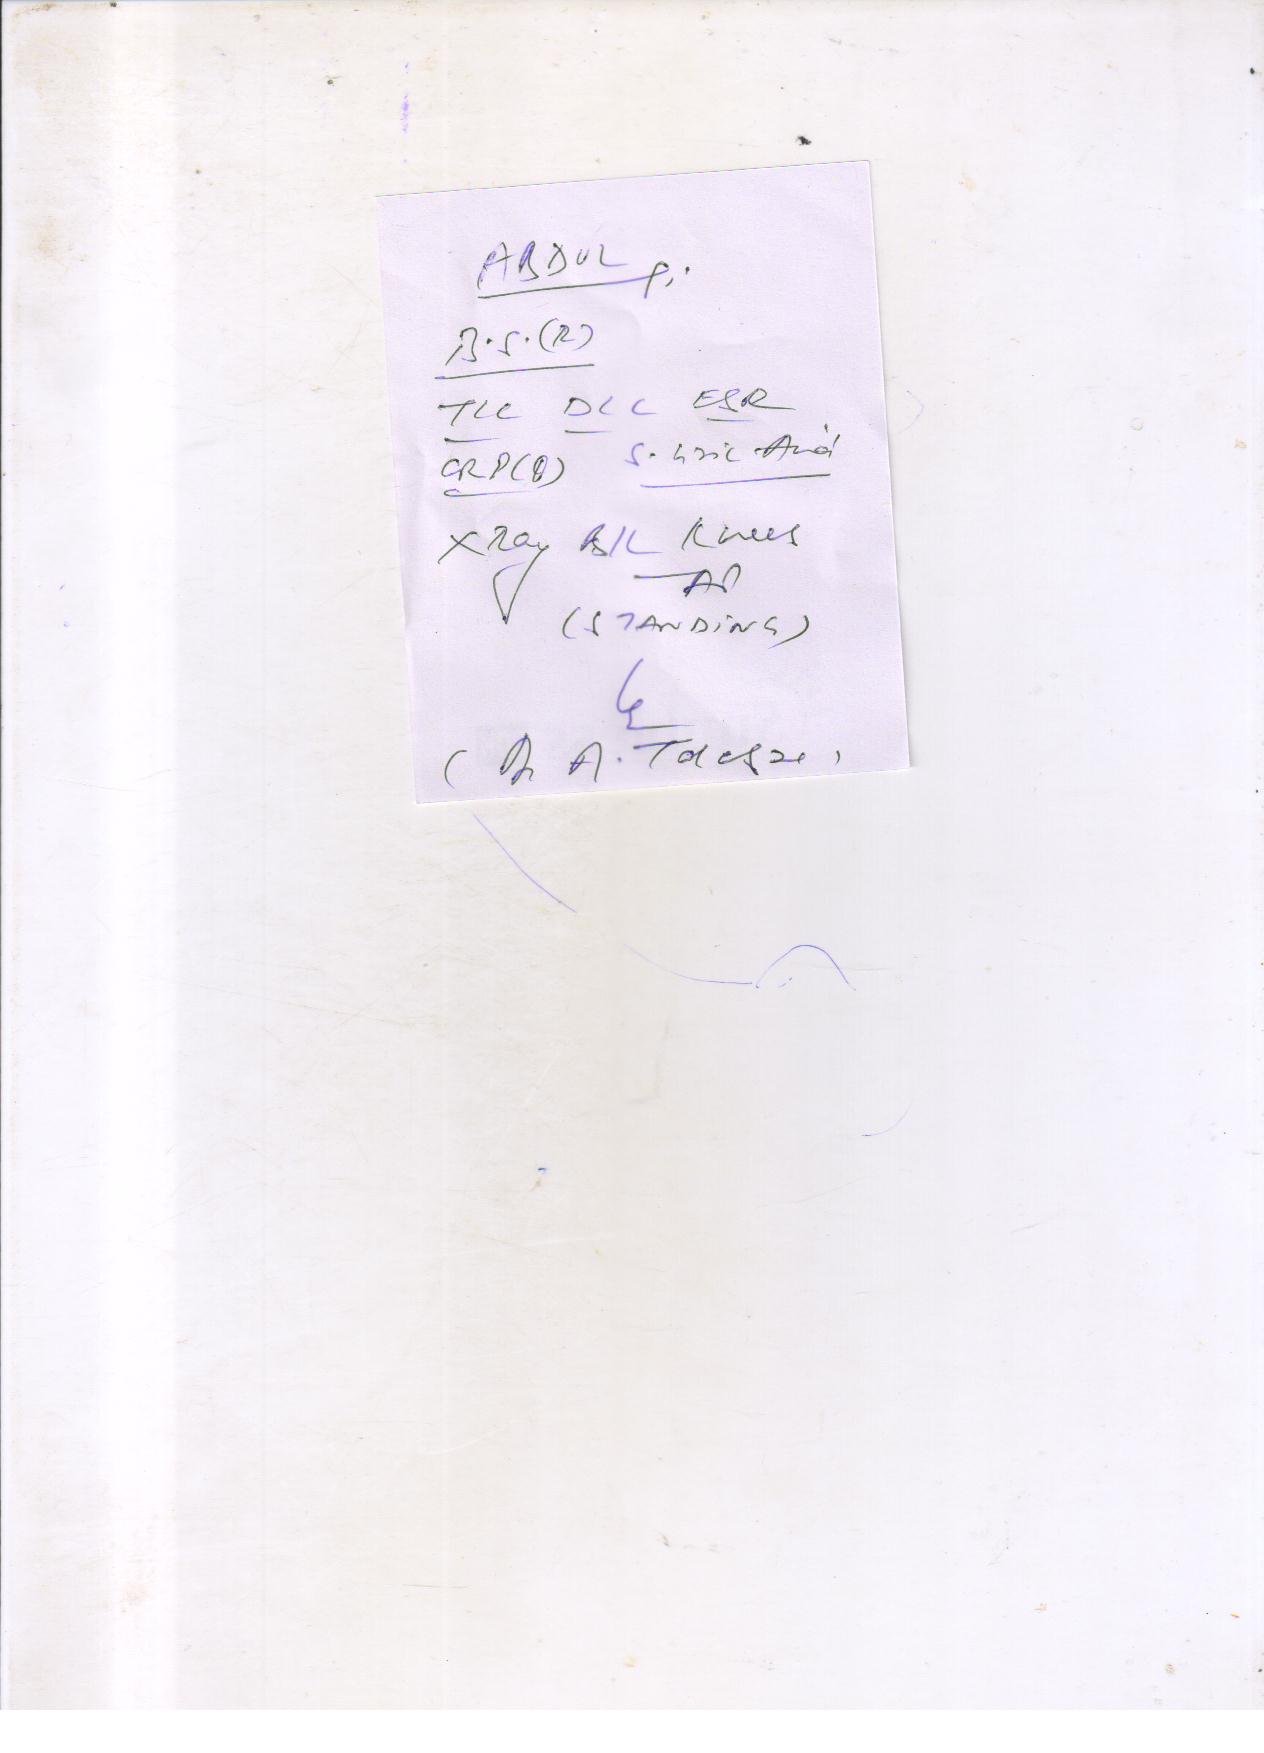 ABDUL
B.S.(R)
TLC DLC ESR
CRP(Q) S. Uric Acid
X Ray B/L Knees
AP
(STANDING)